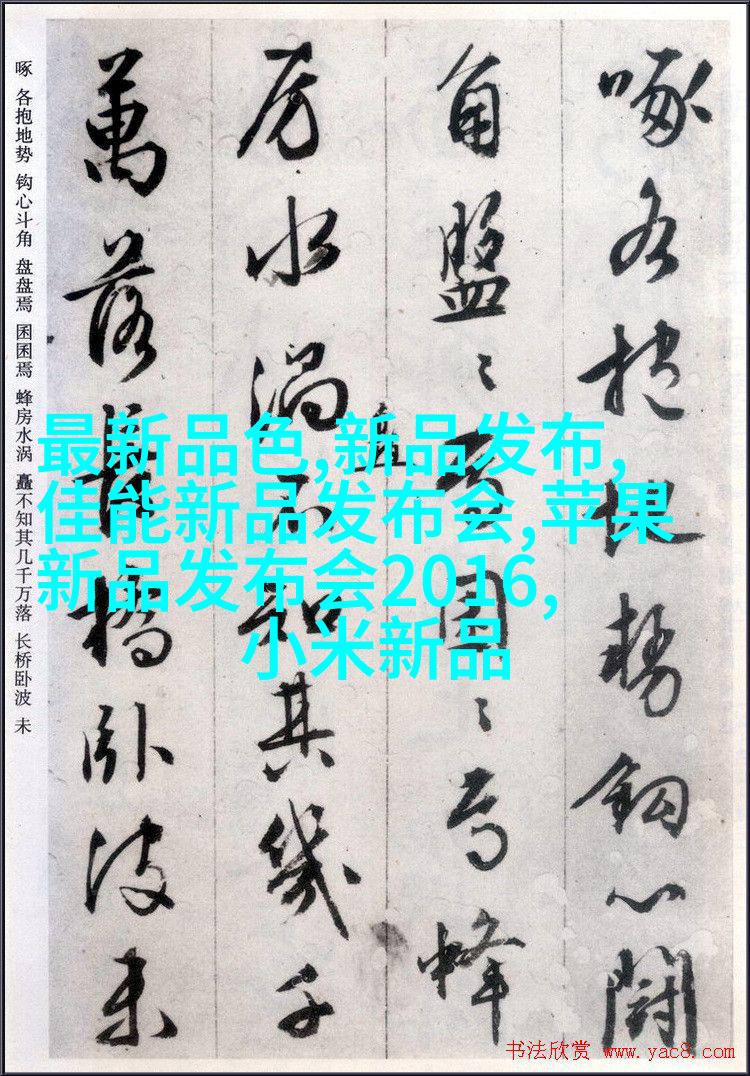 啄各抱地势鈎心闘
角盤〻焉囷〻焉蜂
房水渦矗不知其幾千
萬落長橋臥波未
啄 各抱地势 钩心斗角 盘盘焉 囷囷焉 蜂房水涡 矗不知其几千万落 长桥卧波 未
最新品色,新品发布,
佳能新品发布会,苹果
新品发布会2016,
小米新品
书法欣赏 www.yac8.com